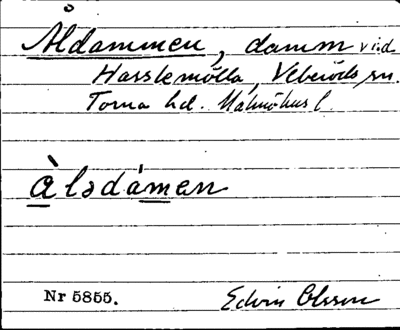 Åldammen, damm vid
Hasslemölla, Veberöds sn.
Torna hd. Malmöhus l.
àlsdámen
Nr 5855.
Edvin Olsson